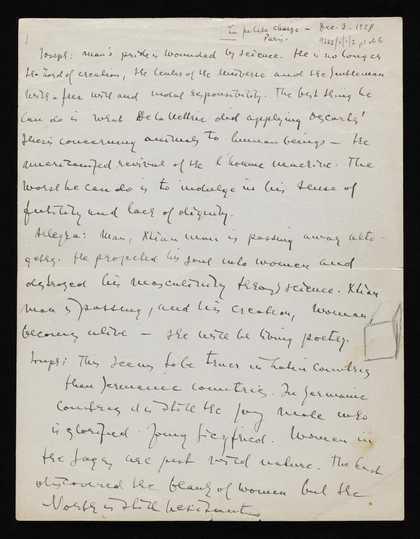 In public charge — Dec. 3. 1928
Paris.
Joseph: man's pride is wounded by science. He is no longer
the Lord of creation, the center of the Universe and the gentleman
with a free will and moral responsibility. The best thing he
can do is what De La Mettrie did applying Descartes'
thesis concerning animals to human beings — the
revival of the l'homme machine. The
worst he can do is to indulge in his sense of
futility and lack of dignity.
Allegra: Man, Xtian man is passing away alto-
gether. He projected his soul into women and
destroyed his masculinity through science. Xtian
man is passing, and his creation, woman,
becomes alive — she will be living poetry.
Joseph: This seems to be truer in Latin countries
than Germanic countries. In Germanic
countries it is still the young male who
is glorified. Young Siegfried. Women in
the sagas are just wild nature. The East
discovered the beauty of women but the
North is still hesitant